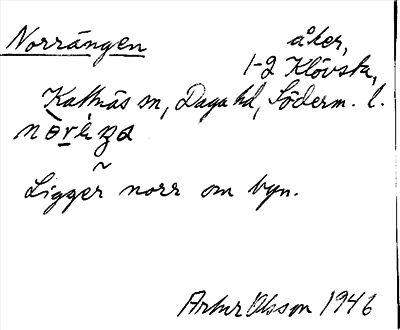 Norrängen
åker,
1-2 Klövsta,
Kattnäs sn, Daga hd, Söderm. l.
Ligger norr om byn.
Artur Olsson 1946